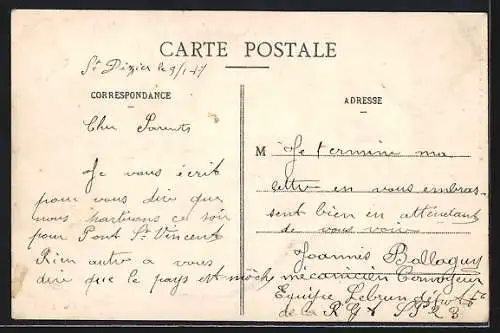 CARTE POSTALE
St Dizier le 9/1-17
CORRESPONDANCE
Cher Parents
Je vous écrit
pour vous dire que
nous partirons ce soir
pour Pont St Vincent
Rien autre a vous
dire que le pays est moche
ADRESSE
M Je termine ma
lettre en vous embras-
sent bien en attendant
de vous voir
Joannis Ballaguy
mécanicien Convoyeur
Equipe Lebrun
de la R G A S P 23